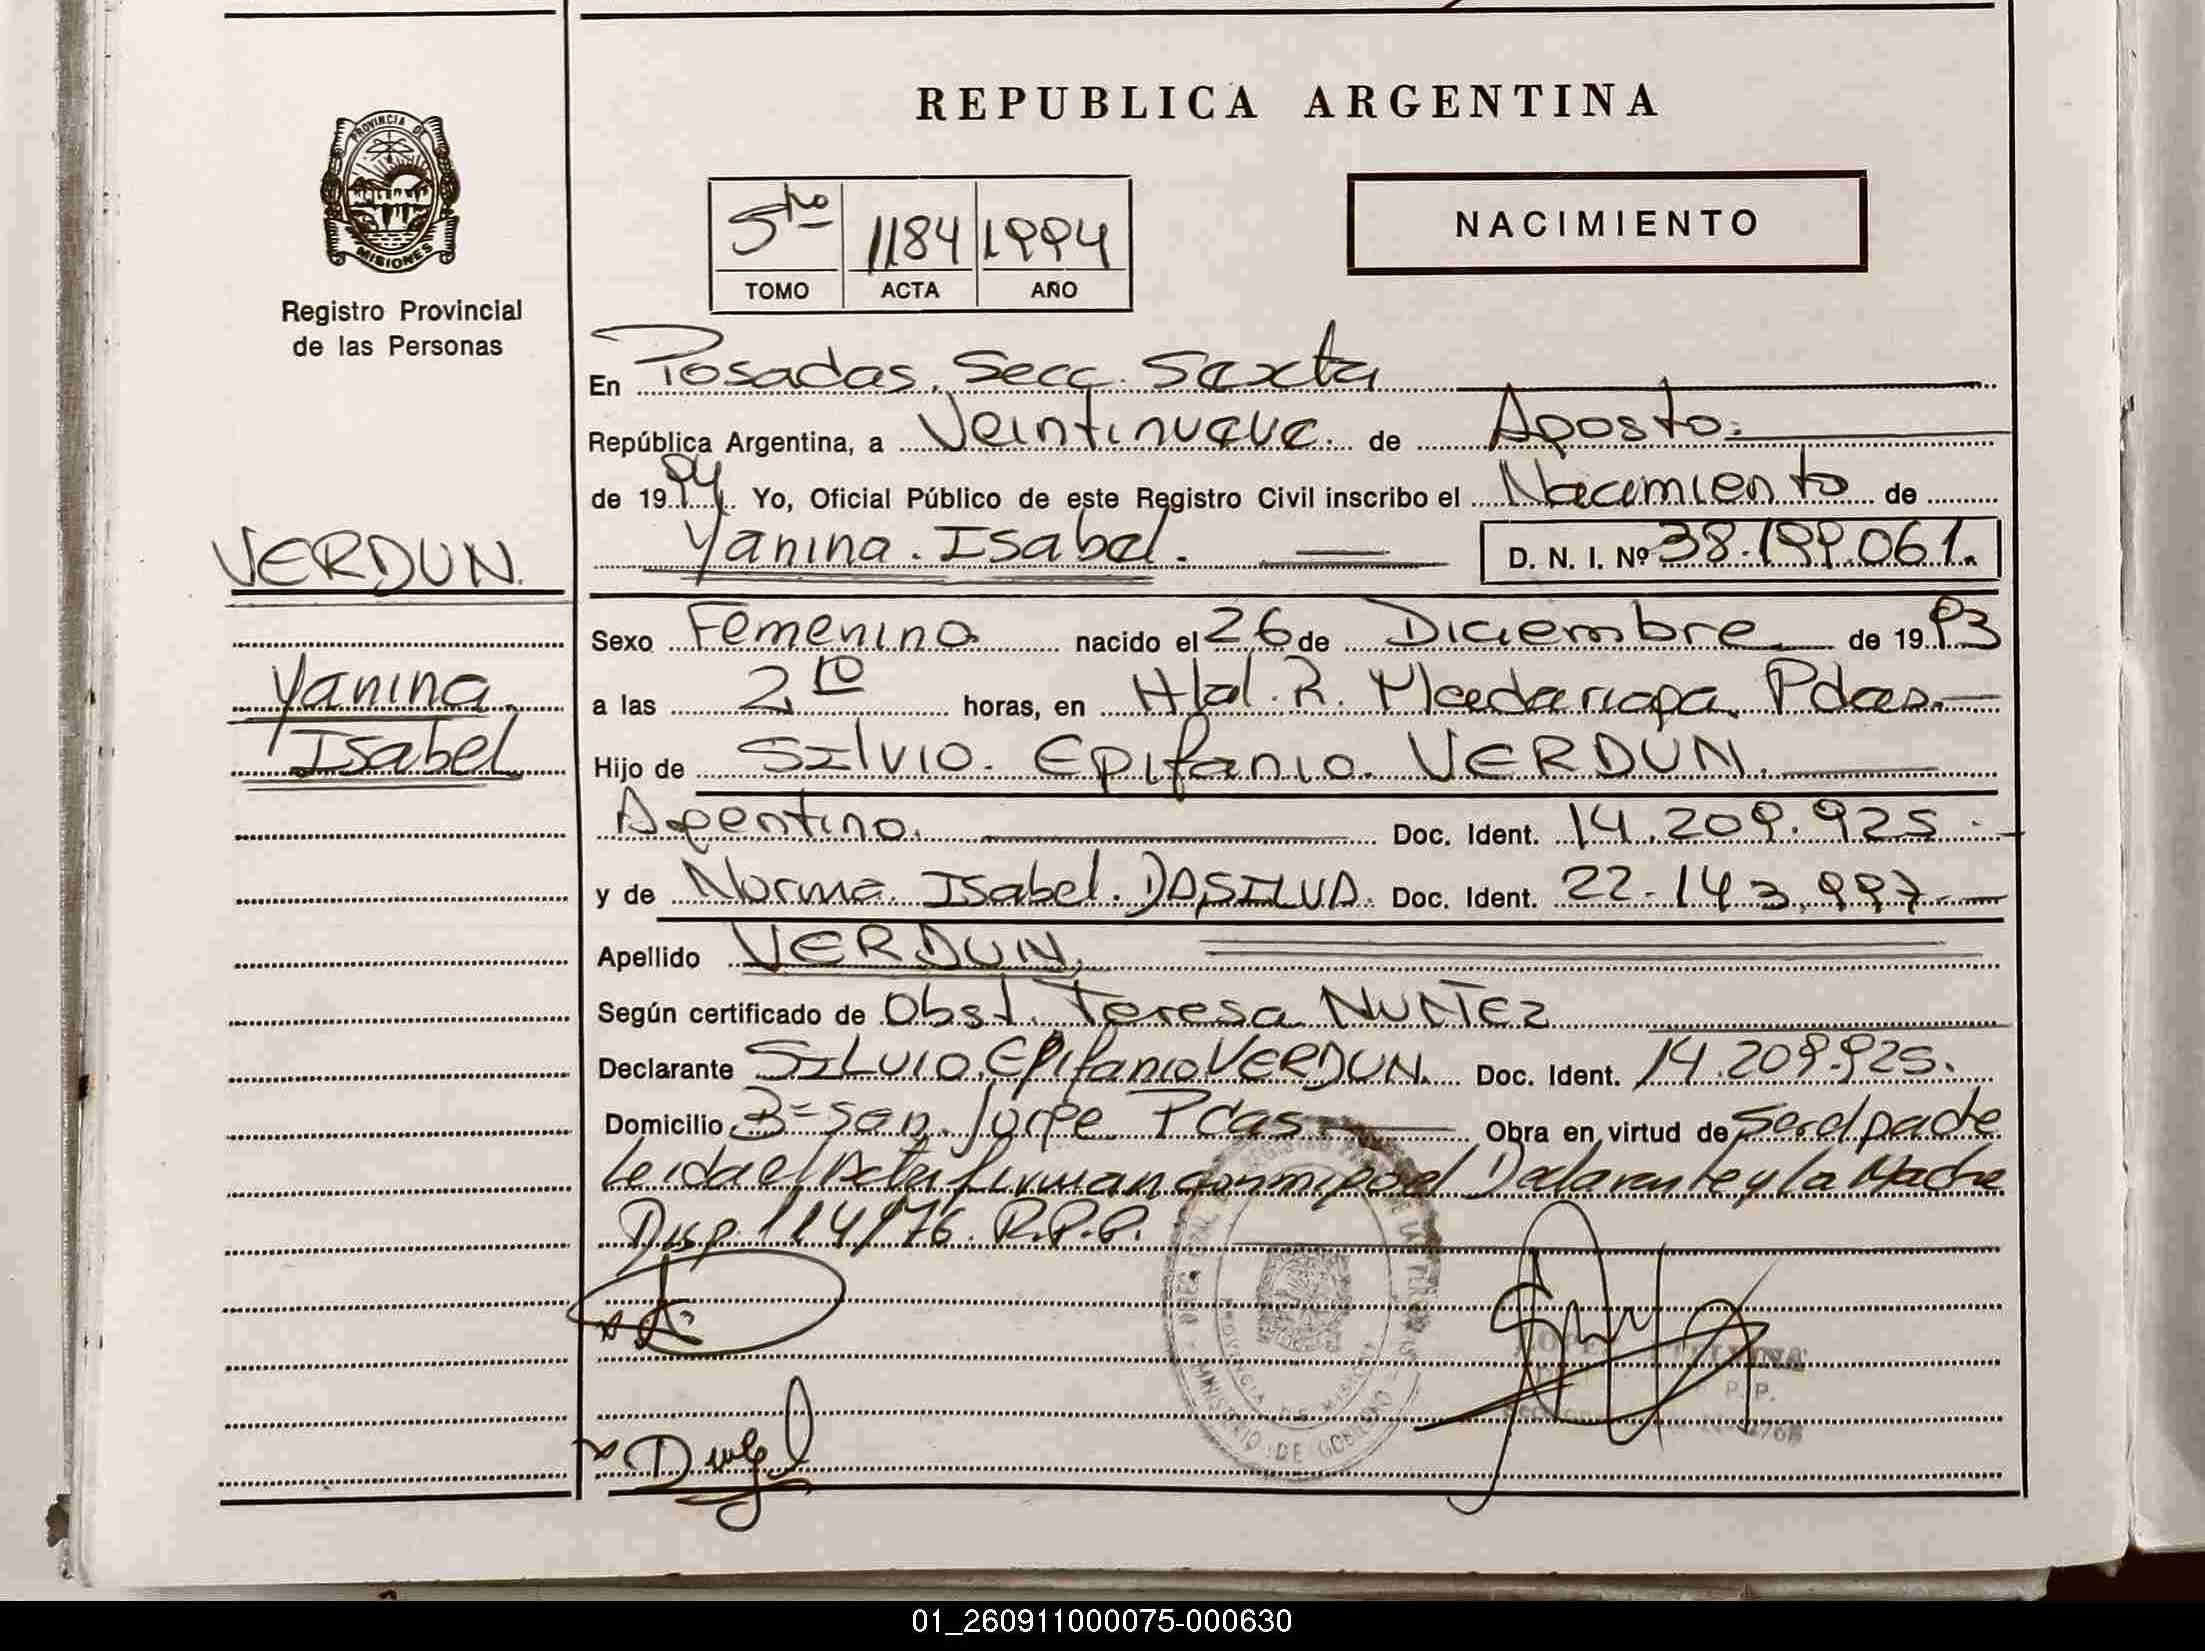 REPUBLICA ARGENTINA
PROVINCIA DE
MISIONES
Registro Provincial
de las Personas
5to 1184 1994
TOMO ACTA AÑO
NACIMIENTO
En Posadas. Secc. Sexta
República Argentina, a Veintinueve. de Agosto.
de 1994. Yo, Oficial Público de este Registro Civil inscribo el Nacimiento de
Yanina. Isabel. D. N. I. Nº 38.199.061.
VERDUN.
Yanina.
Isabel
Sexo Femenino nacido el 26 de Diciembre de 1993
a las 2,10 horas, en Htal. R. Madariaga. Pdas.
Hijo de Silvio. Epifanio. VERDUN.
Argentino. Doc. Ident. 14.209.925.
y de Norma. Isabel. DASILVA. Doc. Ident. 22.143.997
Apellido VERDUN.
Según certificado de Obst. Teresa NUÑEZ
Declarante SILVIO Epifanio VERDUN. Doc. Ident. 14.209.925.
Domicilio Bº San. Jorge Pdas. Obra en virtud de ser el padre
Leida el Acta firman conmigo el Declarante y la Madre
Disp. 114/76. R.P.P.
MINISTERIO DE GOBIERNO
PROVINCIA DE MISIONES
P. P.
01_260911000075-000630